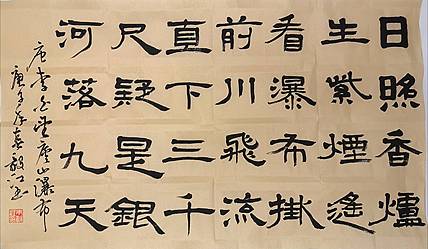 日照香爐
生紫煙遙
看瀑布掛
前川飛流
直下三千
尺疑是銀
河落九天
唐李白望廬山瀑布
庚子年春毅